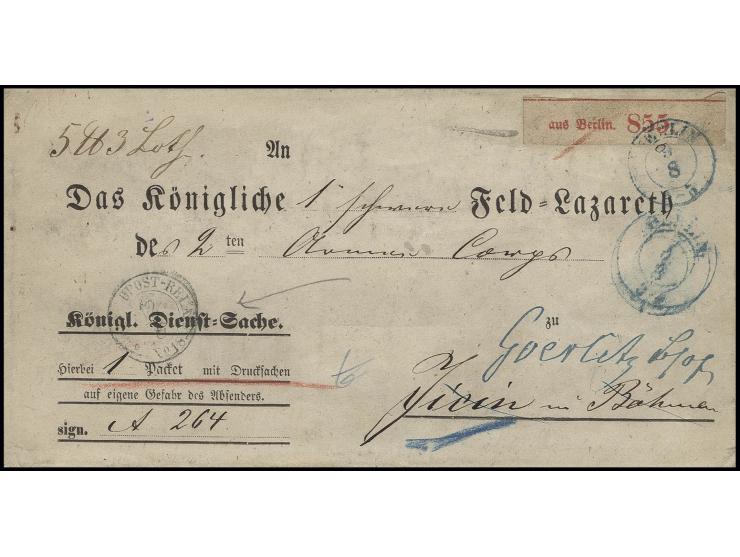 5 ℔ 3 Loth. An
aus Berlin. 855
BERLIN
8
Das Königliche 1 schwere Feld=Lazareth
des 2ten Armee Corps
BERLIN
POST-RELAIS
Königl. Dienst=Sache.
zu
Goerlitz
Hierbei 1 Packet mit Drucksachen
Jicin in Böhmen
auf eigene Gefahr des Absenders.
sign. A 264